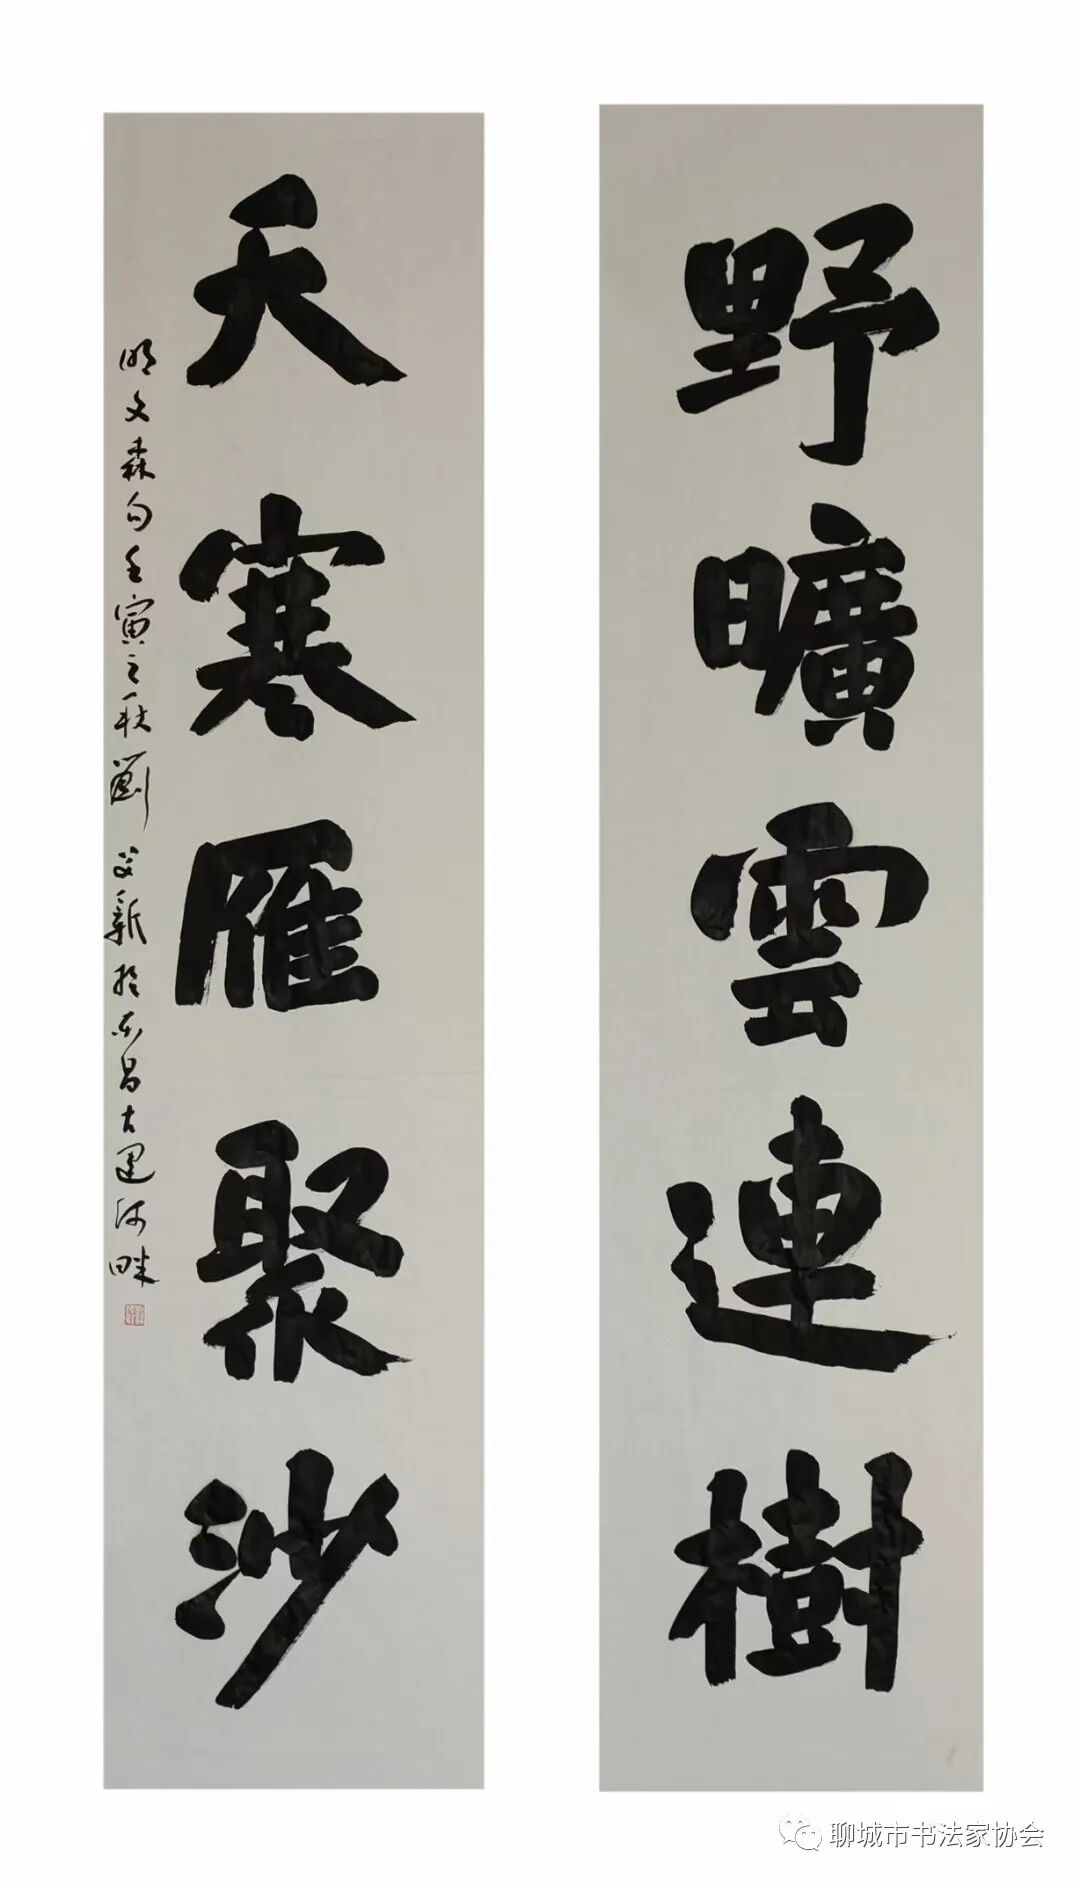 野曠雲連樹
天寒雁聚沙
明文森句壬寅之秋劉文新於東昌古運河畔
聊城市书法家协会